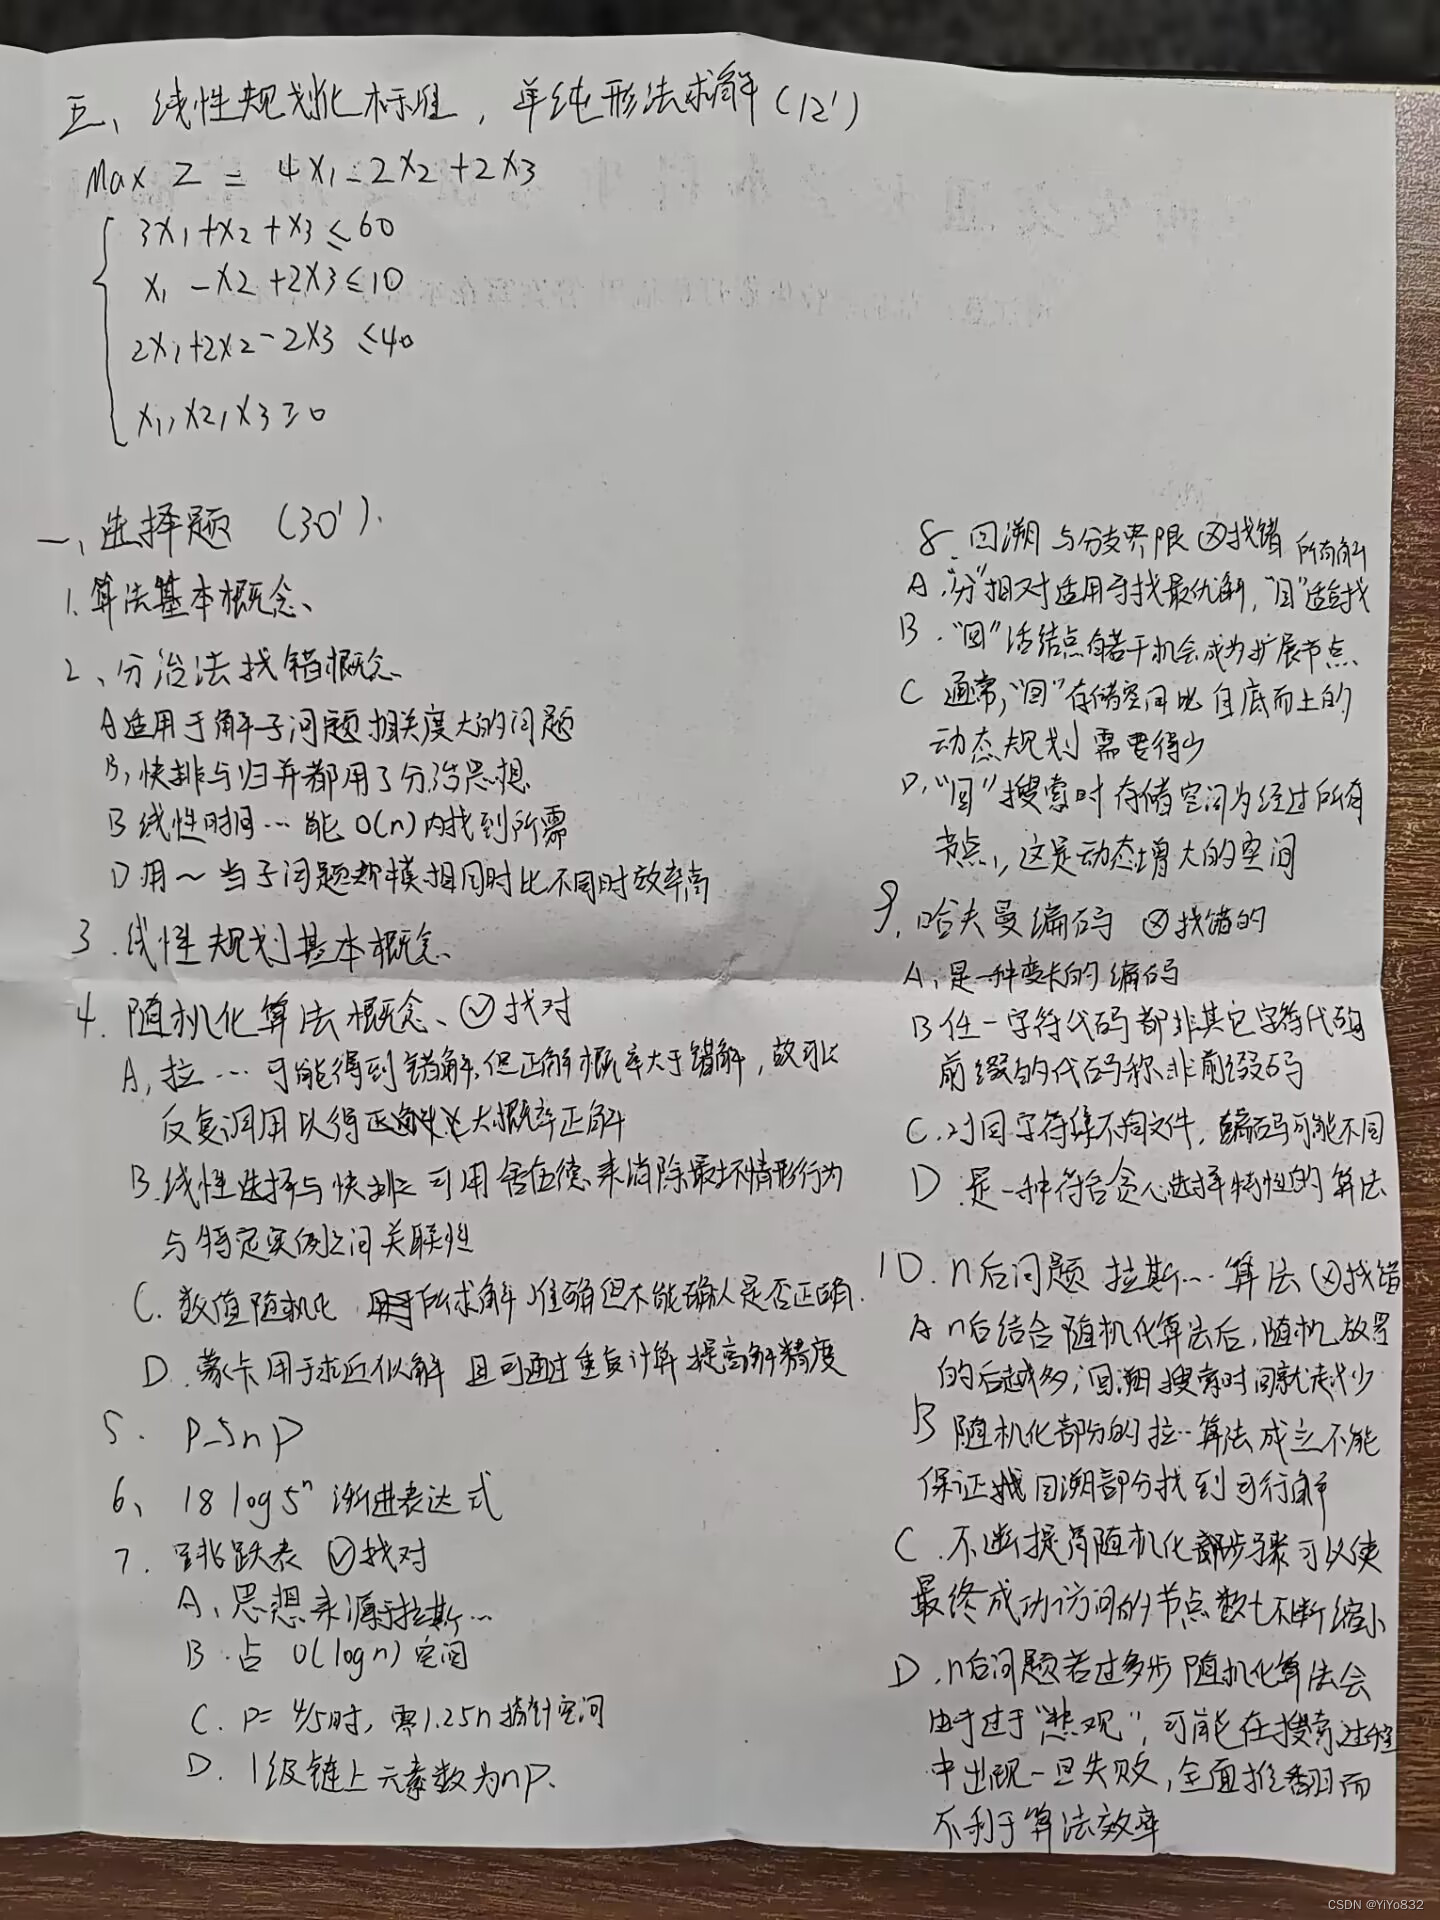 五、线性规划化标准，单纯形法求解(12')
Max Z = 4X1-2X2+2X3
3X1+X2+X3≤60
X1-X2+2X3≤10
2X1+2X2-2X3≤40
X1,X2,X3≥0
一、选择题 (30').
1.算法基本概念、
2、分治法找错概念、
A适用于解子问题相关度大的问题
B,快排与归并都用了分治思想.
B线性时间…能O(n)内找到所需
D用～当子问题规模相同时比不同时效率高
3.线性规划基本概念、
4.随机化算法概念、✓找对
A,拉…可能得到错解,但正解概率大于错解,故可以
反复调用以得大概率正解
B.线性选择与快排可用舍伍德来消除最坏情形行为
与特定实例之间关联性
C.数值随机化 所求解准确但不能确认是否正确.
D.蒙卡用于求近似解 且可通过重复计算提高解精度
5. P_5np
6、18log5ⁿ渐进表达式
7.跳跃表 ✓找对
A、思想来源于拉斯…
B.占O(logn)空间
C.P=4/5时,需1.25n指针空间
D.1级链上元素数为np.
8.回溯与分支界限 ×找错 所有解
A."分"相对适用于找最优解,"回"适合找
B."回"活结点有若干机会成为扩展节点、
C 通常,"回"存储空间比自底而上的
动态规划需要得少
D,"回"搜索时存储空间为经过所有
节点,这是动态增大的空间
9.哈夫曼编码 ×找错的
A,是一种变长的编码
B任一字符代码都非其它字符代码
前缀的代码称非前缀码
C.对同字符集不同文件,编码可能不同
D.是一种符合贪心选择特性的算法
10.n后问题 拉斯…算法 ×找错
A n后结合随机化算法后,随机放置
的后越多,回溯搜索时间就越少
B 随机化部分的拉…算法成立不能
保证回溯部分找到可行解
C.不断提高随机化部步骤可以使
最终成功访问的节点数七不断缩小
D.n后问题若过多步随机化算法会
由于过于"悲观",可能在搜索过程
中出现一旦失败,全面推翻而
不利于算法效率
CSDN @YiYo832